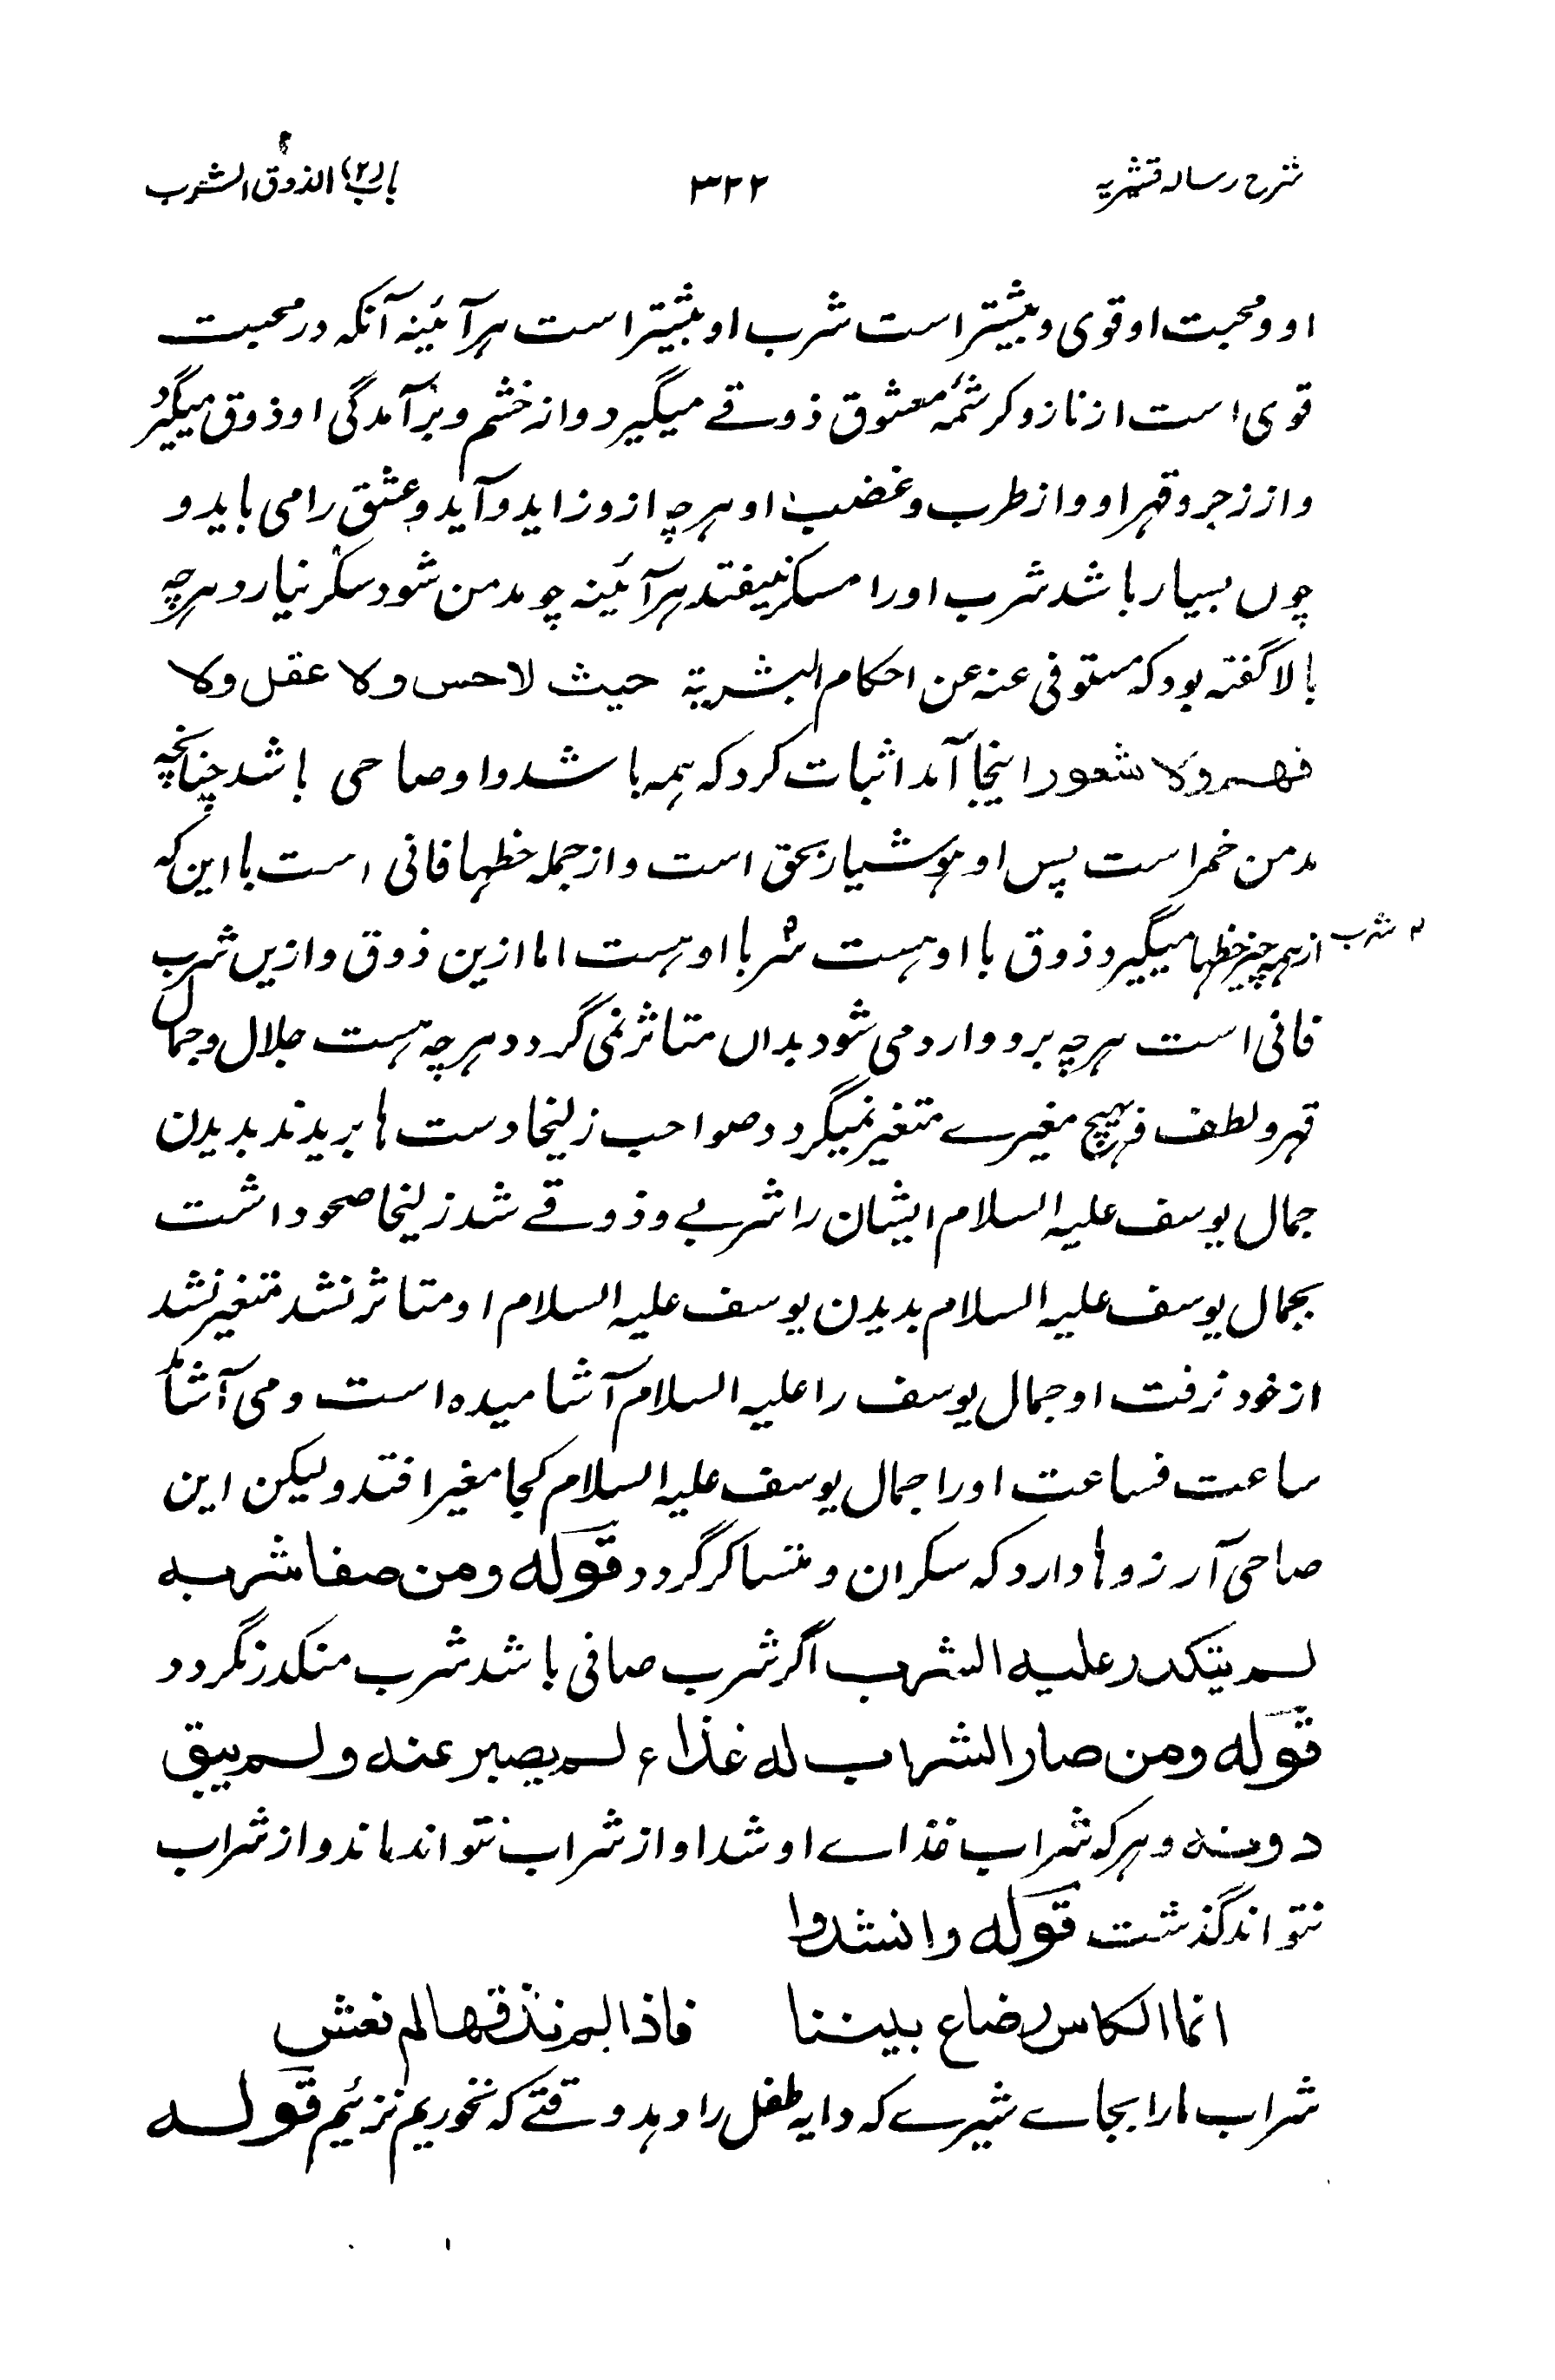 شرح رسالہ قشیریہ
۳۲۲
باب (۲) الذوق الشرب
او و محبت او قوی و بیشتر است شرب او بیشتر است ہر آئینہ آنکہ در محبت
قوی است از ناز و کرشمۂ معشوق ذوقے میگیرد و از خشم و برآمدگی او ذوق میگیرد
و از زجر و قہر او و از طرب و غضب او ہرچہ ازو زاید و آید و عشق را می باید و
چوں بسیار باشد شرب او را مسکر نیفتد ہر آئینہ چو مدمن شود سکر نیارد ہرچہ
بالا گفتہ بود کہ مستوفی عنہ عن احکام البشریۃ حیث لا حس ولا عقل ولا
فہم ولا شعور اینجا آمد اثبات کرد کہ ہمہ باشد و او صاحی باشد چنانچہ
مدمن خمر است پس او ہوشیار بحق است و از جملہ حظہا فانی است با این کہ
از ہمہ چیز حظہا میگیرد ذوق با او ہست شربا او ہست اما ازین ذوق و ازیں شرب
شرب
فانی است ہرچہ برو وارد می شود بداں متاثر نمی گردد ہرچہ ہست جلال و جمال
قہر و لطف فہیچ مغیرے متغیر نمیگردد صواحب زلیخا دست ہا بریدند بدیدن
جمال یوسف علیہ السلام ایشان را شربے و ذوقے شد زلیخا صحو داشت
بجمال یوسف علیہ السلام بدیدن یوسف علیہ السلام او متاثر نشد متغیر نشد
از خود نرفت او جمال یوسف را علیہ السلام آشامیدہ است و می آشامد
ساعت فساعت او را جمال یوسف علیہ السلام کجا مغیر افتد ولیکن این
صاحی آرزوہا دارد کہ سکران و متساکر گردد قولہ ومن صفا شربہ
لم یتکدر علیہ الشرب اگر شرب صافی باشد شرب منکدر نگردد
قولہ ومن صار الشراب لہ غذاء لم یصبر عنہ ولم یبق
دونہ و ہر کہ شراب غذاے او شد او از شراب نتواند ماند و از شراب
نتواند گذشت قولہ وانشدوا
انما الکاس رضاع بیننا فاذا لم نذقہا لم نعش
شراب مارا بجاے شیرے کہ دایہ طفل را دہد وقتے کہ نخوریم نزئیم قولہ